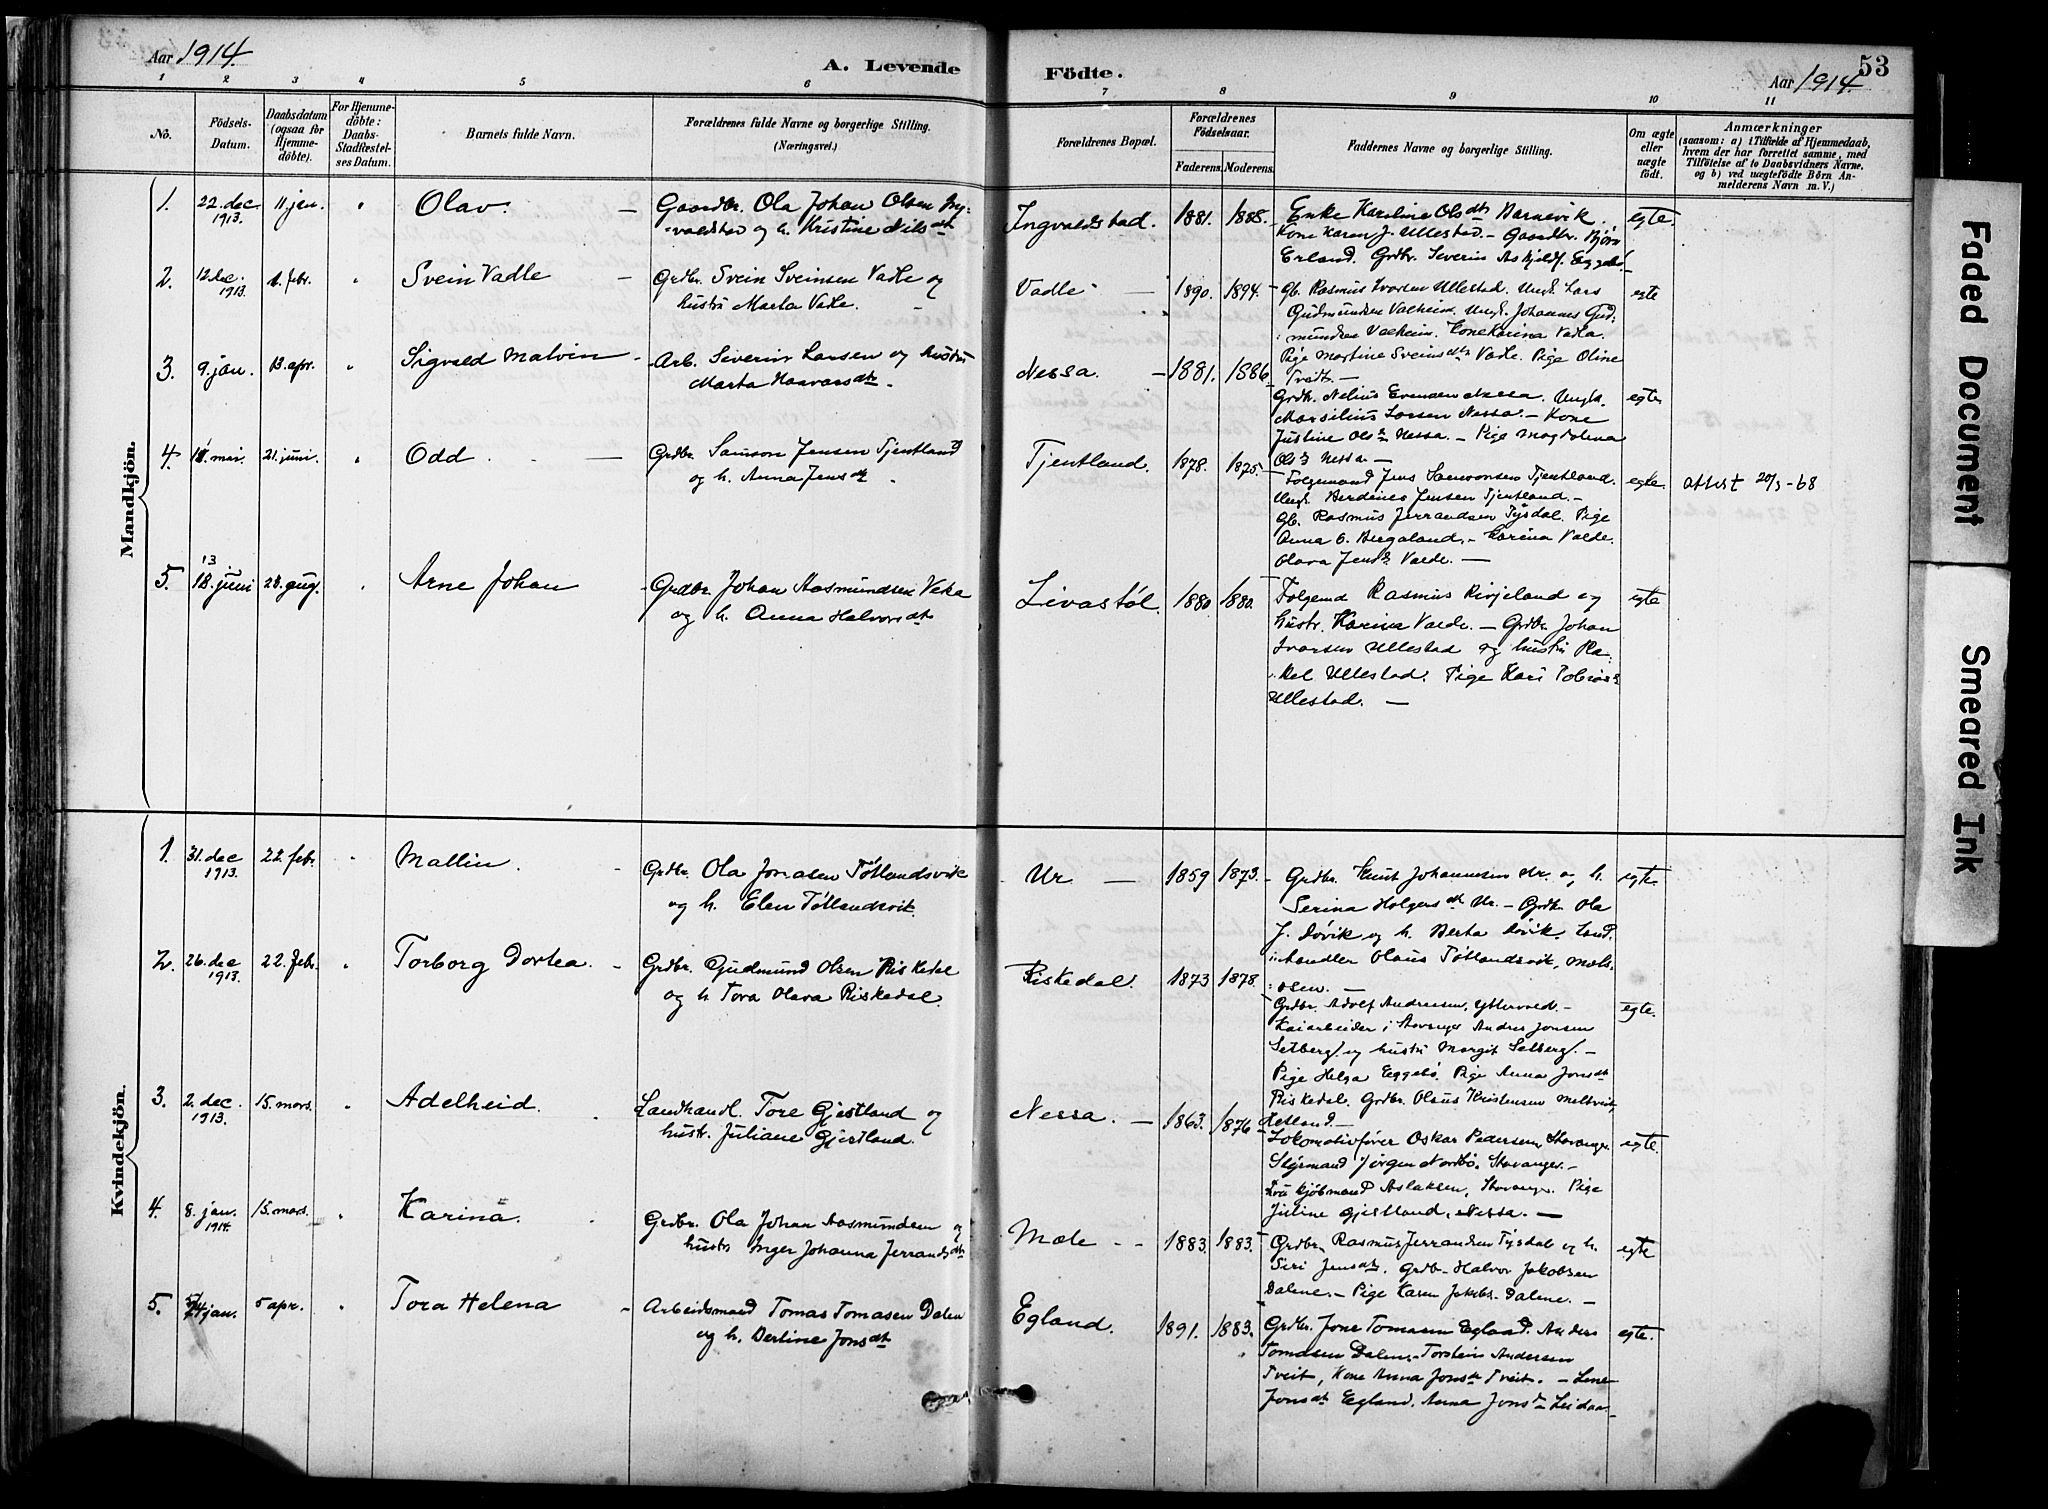 Aar 1914.
A. Levende Födte.
Aar 1914.
53
1 2 3 4 5 6 7 8 9 10 11
No.
Födsels-Datum.
Daabsdatum (ogsaa for Hjemmedöbte).
For Hjemmedöbte: Daabs-Stadfæstelses Datum.
Barnets fulde Navn.
Forældrenes fulde Navne og borgerlige Stilling.
(Næringsvei.)
Forældrenes Bopæl.
Forældrenes Födselsaar.
Faderens. Moderens.
Faddernes Navne og borgerlige Stilling.
Om ægte eller uægte födt.
Anmærkninger
(saasom: a) i Tilfælde af Hjemmedaab,
hvem der har forrettet samme, med
Tilföielse af to Daabsvidners Navne.
og b) ved uægtefödte Börn An-
melderens Navn m. V.)
Mandkjön.
1. 22. dec. 1913. 11 jan. " Olav. —
Gaardbr. Ola Johan Olsen Ing-
valdstad og h. Kristine Nilsdt
Ingvaldstad. 1881. 1885.
Enke Karoline Olsdt Barnevik.
Kone Karen J. Ullestad. — Gaardbr. Bjørn
Erland. Grdbr. Severin Askjelds. Eggebø.
egte.
2. 12 dec. 1913. 1. febr. " Svein Vadle —
Grdbr. Svein Sveinsen Vadle og
hustru Marta Vadle.
Vadle — 1890. 1894.
Gb. Rasmus Ivarsen Ullestad. Ungk. Lars
Gudmundsen Valheim. Ungk. Johannes Gud-
mundsen Valheim. Kone Karina Vadla.
Pige Martine Sveinsdtr Vadle. Pige Oline
Tveit. —
egte
3. 9. jan. 13. apr. " Sigvald Malvin —
Arb. Siverin Larsen og hustru
Marta Haavarsdt.
Nessa. — 1881. 1886.
Grdbr. Nelius Evensen Nessa. Ungk.
Marsilius Larsen Nessa. — Kone
Justine Olsd Nessa. — Pige Magdalena
Olsd Nessa. —
egte
4. mai. 21. juni. " Odd —
Grdbr. Samson Jensen Tjentland
og h. Anna Jensdt.
Tjentland. 1878. 1875.
Folgemand Jens Samsonsen Tjentland.
Ungk. Berdines Jensen Tjentland. —
Gb. Rasmus Jerrandsen Tysdal. Pige
Anna O. Bergaland. — Karina Valde.
Olava Jensd Valde. —
egte. attest 20/3-68
5. 13 juni aug. " Arne Johan
Grdbr. Johan Aasmundsen Veka
og h. Anna Halvorsdt.
Livastøl. 1880. 1880.
Folgemd Rasmus Kirjeland og
hustr. Karina Valde. — Grdbr. Johan
Ivarsen Ullestad og hustru Ra-
kel Ullestad. Pige Kari Tobiasd
Ullestad. —
egte
Kvindekjön.
1. 31. dec 1913. 22. febr. " Mallin. —
Grdbr. Ola Jonasen Tøtlandsvik
og h. Elen Tøtlandsvik.
Ur — 1859 1873.
Grdbr. Knut Johannesen Ur. og h.
Serina Holgersdt Ur. — Grdbr. Ola
J. Døvik og h. Berta Døvik. Land-
handler Olaus Tøtlandsvik, Mals-
osen. —
egte.
2. 26. dec 1913. 22. febr. " Torborg Dortea. —
Grdbr. Gudmund Olsen Riskedal
og h. Tora Olava Riskedal.
Riskedal. 1873 1878.
Grdbr. Adolf Andreasen, —
Kaiarbeider i Stavanger Andres Jonsen
Setberg og hustru Margit Setberg. —
Pige Helga Eggebø. Pige Anna Jonsdt
Riskedal. Grdbr. Olaus Kristensen
Hetland —
egte.
3. 2. dec. 1913. 15. mars. " Adelheid.
Landhandl. Tore Gjestland og
hustr. Juliane Gjestland.
Nessa. — 1863. 1876
Lokomotivfører Oskar Pedersen, Stavanger.
Styrmand Jørgen Nordbø. Stavanger. —
Fru kjøbmand Aslaksen, Stavanger. Pige
Juline Gjestland, Nessa. —
egte.
4. 8. jan. 1914. 15. mars. " Karina.
Grdbr. Ola Johan Aasmundsen og
hustr Inger Johanna Jerrandsdt
Mæle 1883. 1883.
Grdbr. Rasmus Jerrandsen Tysdal og h.
Siri Jensdt. Grdb. Halvor Jakobsen
Dalene. — Pige Karen Jakobs. Dalene. —
egte
5. jan. 5 apr. " Tora Helena —
Arbeidsmand Tomas Tomasen Dalen
og h. Bertine Jonsdt
Egland. 1891. 1883.
Grdbr. Jone Tomasen Egland. Anders
Tomasen Dalen. — Torstein Andersen
Tveit, Kone Anna Jonsdt Tveit. — Lene
Jonsdt Egland. Anna Jonsd
egte.
Faded Document
Smeared Ink